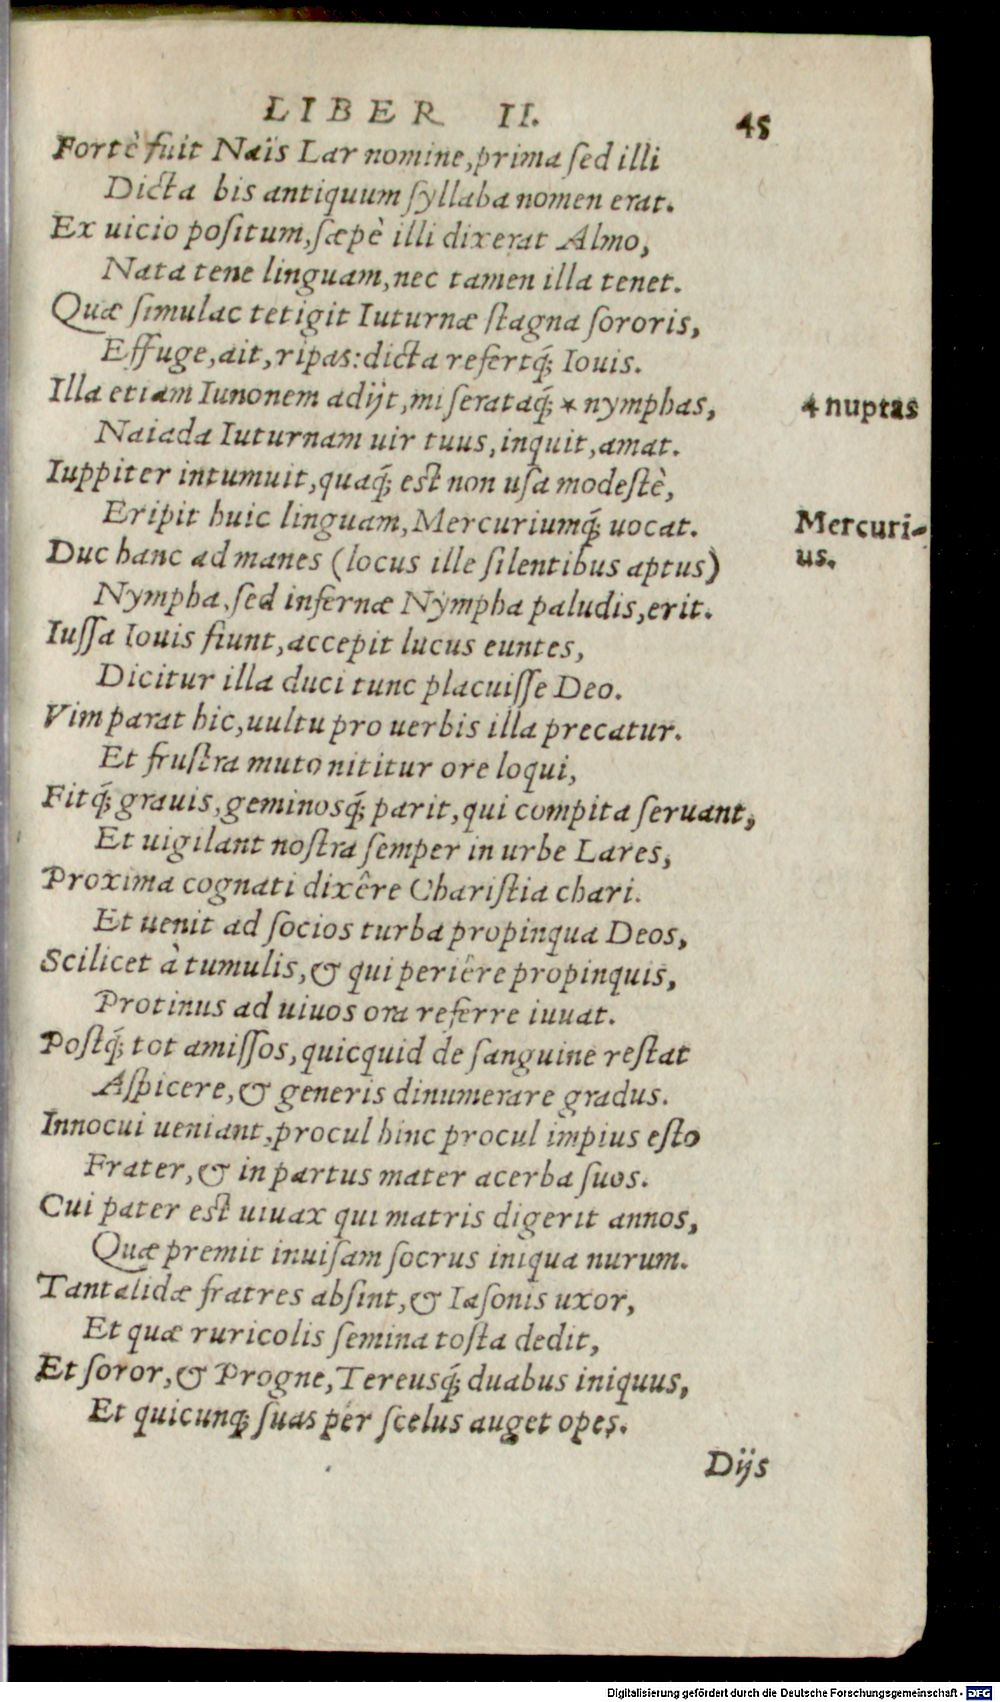 LIBER II. 45
Fortè fuit Naïs Lar nomine, prima sed illi
Dicta bis antiquum syllaba nomen erat.
Ex uicio positum, sæpè illi dixerat Almo,
Nata tene linguam, nec tamen illa tenet.
Quæ simulac tetigit Iuturnæ stagna sororis,
Effuge, ait, ripas: dicta refertq́; Iouis.
Illa etiam Iunonem adijt, miserataq́; * nymphas,
* nuptas
Naiada Iuturnam uir tuus, inquit, amat.
Iuppiter intumuit, quaq́; est non usa modestè,
Eripit huic linguam, Mercuriumq́; uocat.
Mercuri-
us.
Duc hanc ad manes (locus ille silentibus aptus)
Nympha, sed infernæ Nympha paludis, erit.
Iussa Iouis fiunt, accepit lucus euntes,
Dicitur illa duci tunc placuisse Deo.
Vim parat hic, uultu pro uerbis illa precatur.
Et frustra muto nititur ore loqui,
Fitq́; grauis, geminosq́; parit, qui compita seruant,
Et uigilant nostra semper in urbe Lares,
Proxima cognati dixêre Charistia chari.
Et uenit ad socios turba propinqua Deos,
Scilicet à tumulis, & qui periêre propinquis,
Protinus ad uiuos ora referre iuuat.
Postq́; tot amissos, quicquid de sanguine restat
Aspicere, & generis dinumerare gradus.
Innocui ueniant, procul hinc procul impius esto
Frater, & in partus mater acerba suos.
Cui pater est uiuax qui matris digerit annos,
Quæ premit inuisam socrus iniqua nurum.
Tantalidæ fratres absint, & Iasonis uxor,
Et quæ ruricolis semina tosta dedit,
Et soror, & Progne, Tereusq́; duabus iniquus,
Et quicunq; suas per scelus auget opes.
Dijs
Digitalisierung gefördert durch die Deutsche Forschungsgemeinschaft - DFG